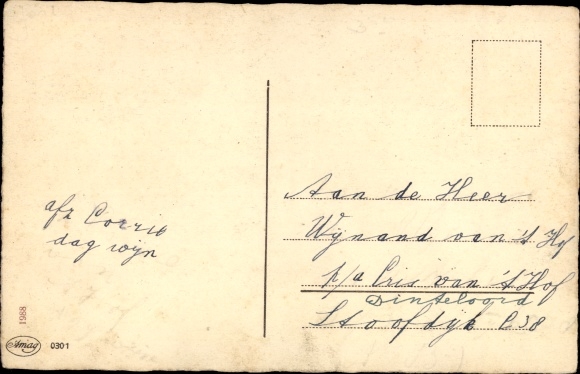 afz Corrie
dag wijn
Aan de Heer
Wijnand van 't Hof
p/a Cris van 't Hof
Dinteloord
Stoofdijk C38
1988
Amag 0301